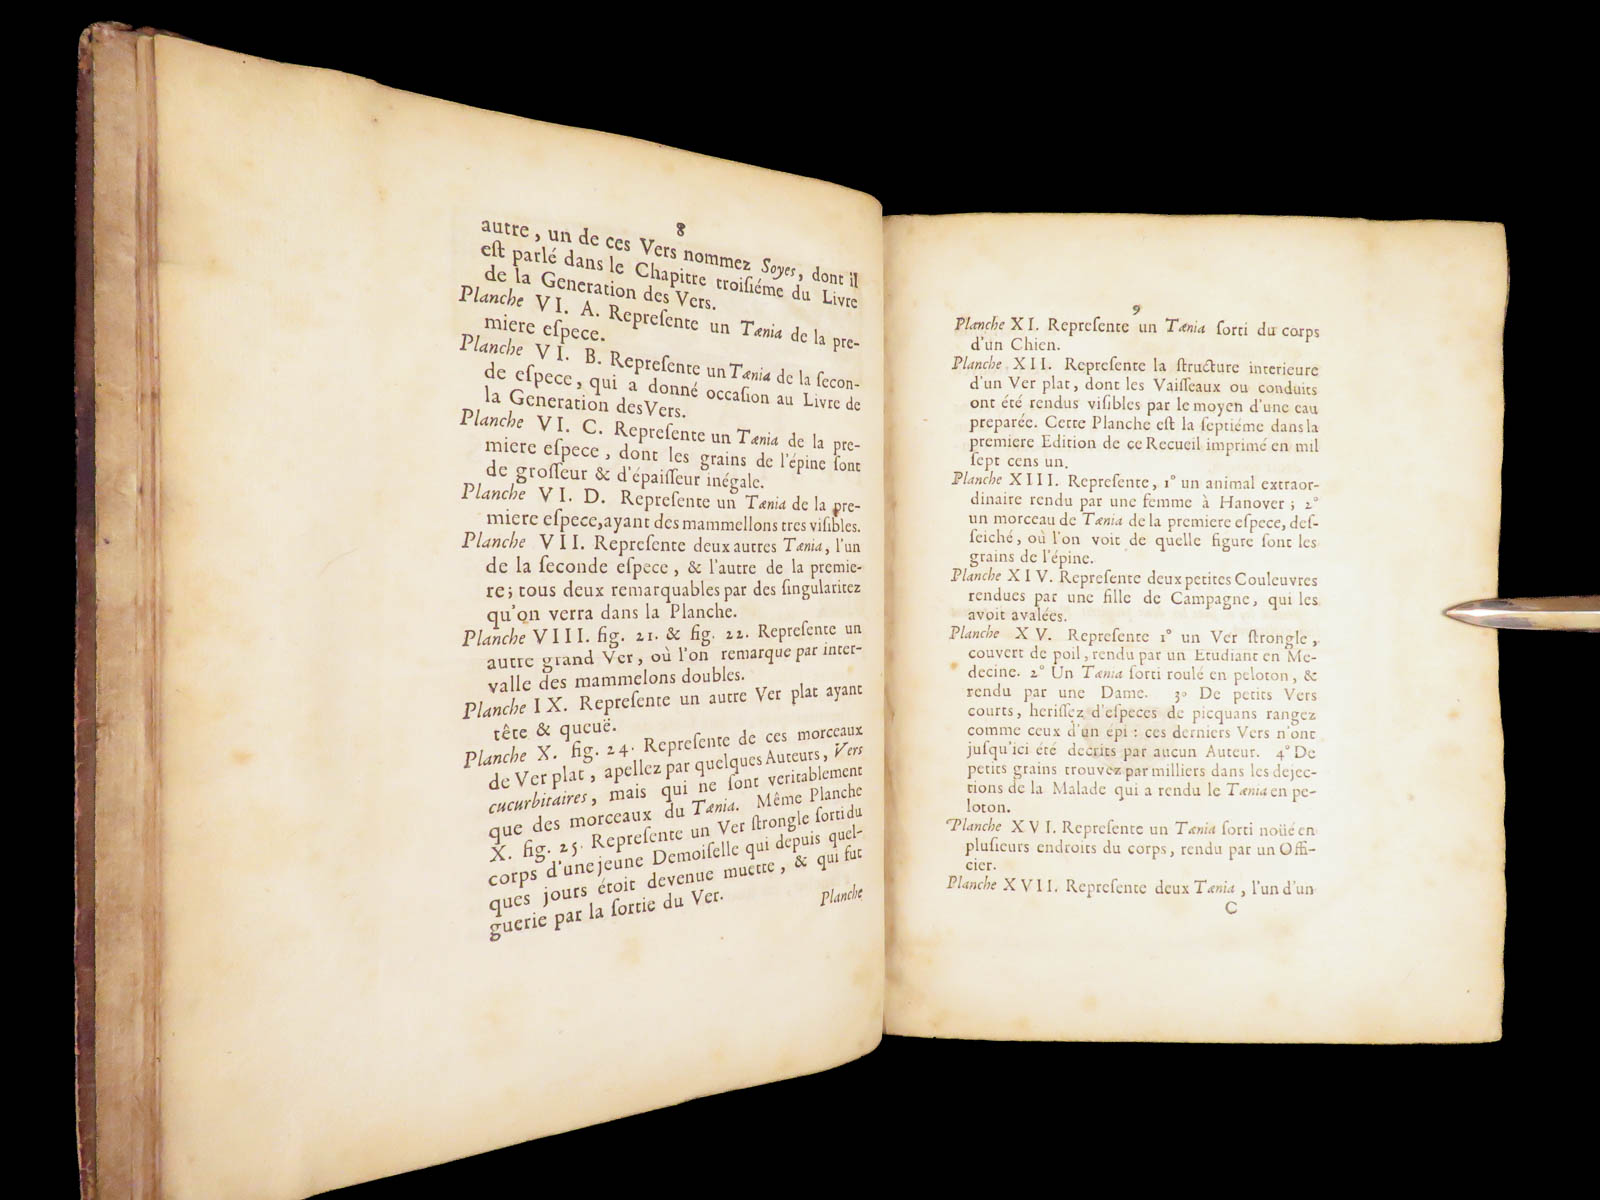 8
autre, un de ces Vers nommez Soyes, dont il
eſt parlé dans le Chapitre troiſiéme du Livre
de la Generation des Vers.
Planche VI. A. Repreſente un Tænia de la pre-
miere eſpece.
Planche VI. B. Repreſente un Tænia de la ſecon-
de eſpece, qui a donné occaſion au Livre de
la Generation des Vers.
Planche VI. C. Repreſente un Tænia de la pre-
miere eſpece, dont les grains de l'épine ſont
de groſſeur & d'épaiſſeur inégale.
Planche VI. D. Repreſente un Tænia de la pre-
miere eſpece, ayant des mammellons tres viſibles.
Planche VII. Repreſente deux autres Tænia, l'un
de la ſeconde eſpece, & l'autre de la premie-
re; tous deux remarquables par des ſingularitez
qu'on verra dans la Planche.
Planche VIII. fig. 21. & fig. 22. Repreſente un
autre grand Ver, où l'on remarque par inter-
valle des mammelons doubles.
Planche IX. Repreſente un autre Ver plat ayant
tête & queuë.
Planche X. fig. 24. Repreſente de ces morceaux
de Ver plat, apellez par quelques Auteurs, Vers
cucurbitaires, mais qui ne ſont veritablement
que des morceaux du Tænia. Même Planche
X. fig. 25. Repreſente un Ver ſtrongle ſorti du
corps d'une jeune Demoiſelle qui depuis quel-
ques jours étoit devenue muette, & qui fut
guerie par la ſortie du Ver.
Planche
9
Planche XI. Repreſente un Tænia ſorti du corps
d'un Chien.
Planche XII. Repreſente la ſtructure interieure
d'un Ver plat, dont les Vaiſſeaux ou conduits
ont été rendus viſibles par le moyen d'une eau
preparée. Cette Planche eſt la ſeptiéme dans la
premiere Edition de ce Recueil imprimé en mil
ſept cens un.
Planche XIII. Repreſente, 1° un animal extraor-
dinaire rendu par une femme à Hanover; 2°
un morceau de Tænia de la premiere eſpece, deſ-
ſeiché, où l'on voit de quelle figure ſont les
grains de l'épine.
Planche XIV. Repreſente deux petites Couleuvres
rendues par une fille de Campagne, qui les
avoit avalées.
Planche XV. Repreſente 1° un Ver ſtrongle,
couvert de poil, rendu par un Etudiant en Me-
decine. 2° Un Tænia ſorti roulé en peloton, &
rendu par une Dame. 3° De petits Vers
courts, heriſſez d'eſpeces de picquans rangez
comme ceux d'un épi: ces derniers Vers n'ont
juſqu'ici été decrits par aucun Auteur. 4° De
petits grains trouvez par milliers dans les dejec-
tions de la Malade qui a rendu le Tænia en pe-
loton.
Planche XVI. Repreſente un Tænia ſorti noüé en
pluſieurs endroits du corps, rendu par un Offi-
cier.
Planche XVII. Repreſente deux Tænia, l'un d'un
C